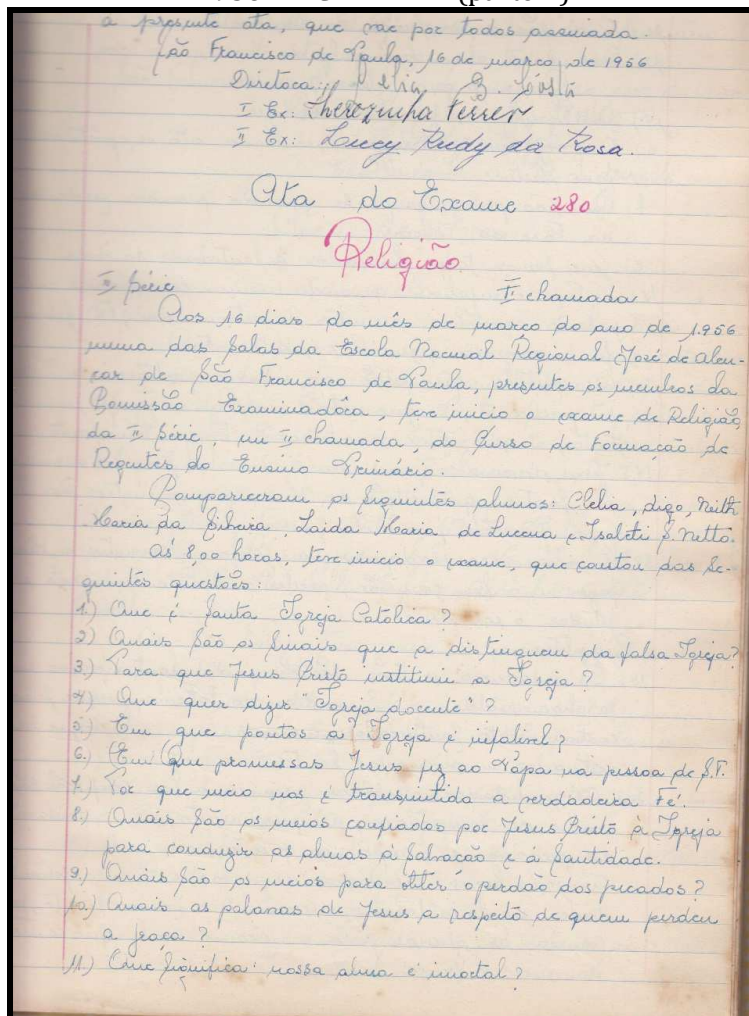 a presente ata, que vae por todos assinada.
São Francisco de Paula, 16 de março de 1956
Diretora: Costa
I Ex: Therezinha Ferrer
II Ex: Lucy Rudy da Rosa.
Ata do Exame 280
Religião
II Série I chamada
Aos 16 dias do mês de março do ano de 1.956
numa das Salas da Escola Normal Regional José de Alen-
car de São Francisco de Paula, presentes os membros da
Comissão Examinadôra, teve inicio o exame de Religião,
da II Série, em II chamada, do Curso de Formação de
Regentes do Ensino Primário.
Compareceram os Siguintes alunos: Clelia, digo, Neith
Maria da Silveira, Laida Maria de Lucena e Isoleti S. Netto.
Ás 8,00 horas, teve inicio o exame, que constou das Se-
guintes questões:
1.) Que é Santa Igreja Católica?
2) Quais São os Sinais que a distinguem da falsa Igreja?
3.) Para que Jesus Cristo instituiu a Igreja?
4) Que quer dizer "Igreja docente"?
5) Em que pontos a Igreja é infalivel?
6.) (Em) Que promessas Jesus fez ao Papa na pessoa de S.P.
7.) Por que meio nos é transmitida a verdadeira Fé.
8.) Quais São os meios confiados por Jesus Cristo à Igreja
para conduzir as almas à Salvação e à Santidade.
9.) Quais São os meios para obter o perdão dos pecados?
10.) Quais as palavras de Jesus a respeito de quem perdeu
a graça?
11.) Que Significa: nossa alma é imortal?